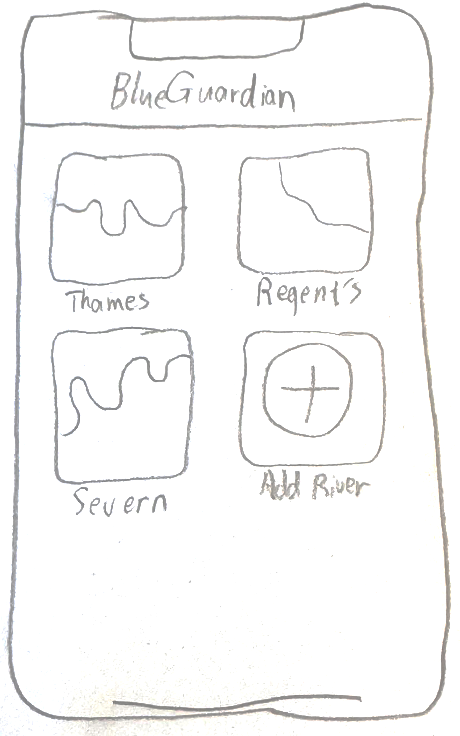 BlueGuardian
Thames
Regent's
Severn
Add River